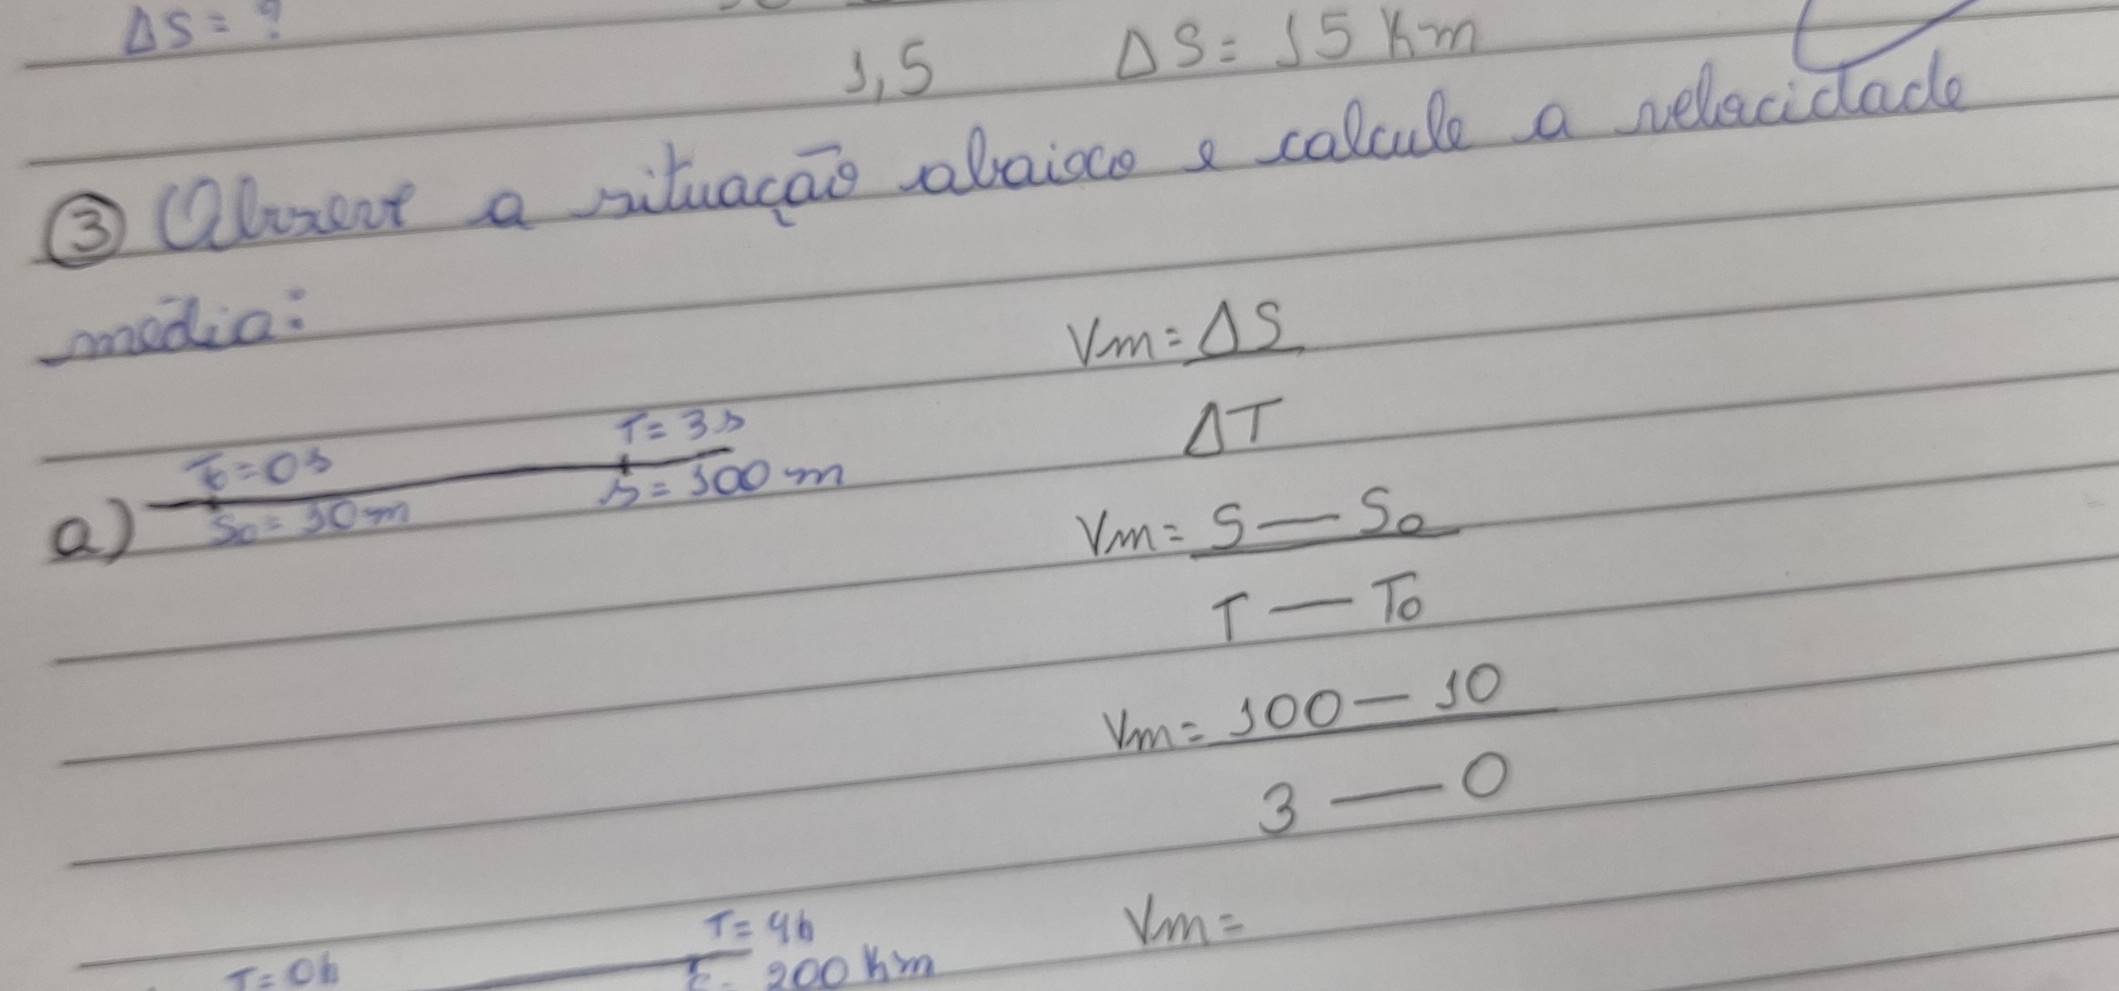 ΔS = ?
1,5 ΔS = 15 Km
③ Observe a situação abaixo e calcule a velocidade
média:
Vm = ΔS
ΔT
T = 3s
T0 = 0s
a) S0 = 10m S = 100 m
Vm = S — S0
T — T0
Vm = 100 — 10
3 — 0
Vm =
T = 4h
T = 0h 200 Km